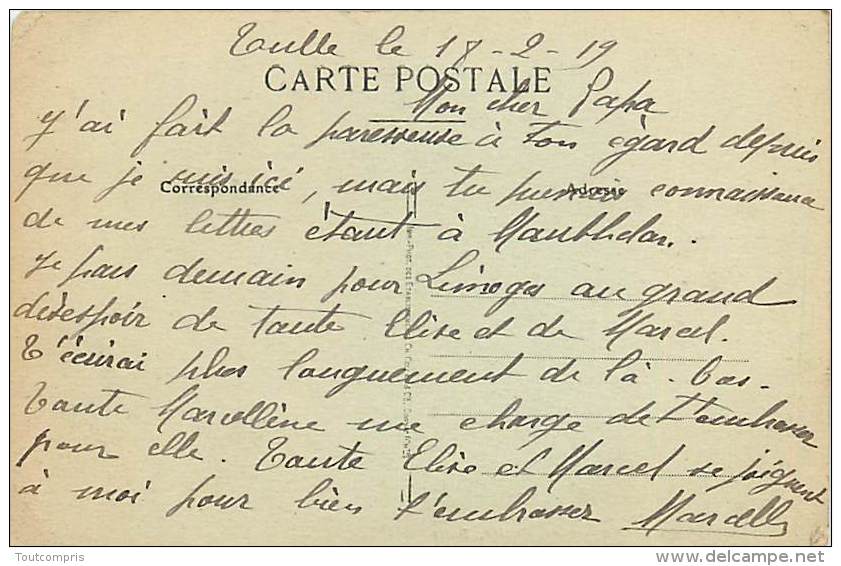 Tulle le 18-2-19
CARTE POSTALE
Mon cher Papa
J'ai fait la paresseuse à ton égard depuis
que je suis ici, mais tu prenais connaissance
Correspondance Adresse
de mes lettres étant à
Je pars demain pour Limoges au grand
désespoir de tante Elise et de Marcel.
T'écrirai plus longuement de là-bas.
Tante Marcelline me charge de t'embrasser
pour elle. Tante Elise et Marcel se joignent
à moi pour bien t'embrasser Marcelle
Toutcompris
www.delcampe.net